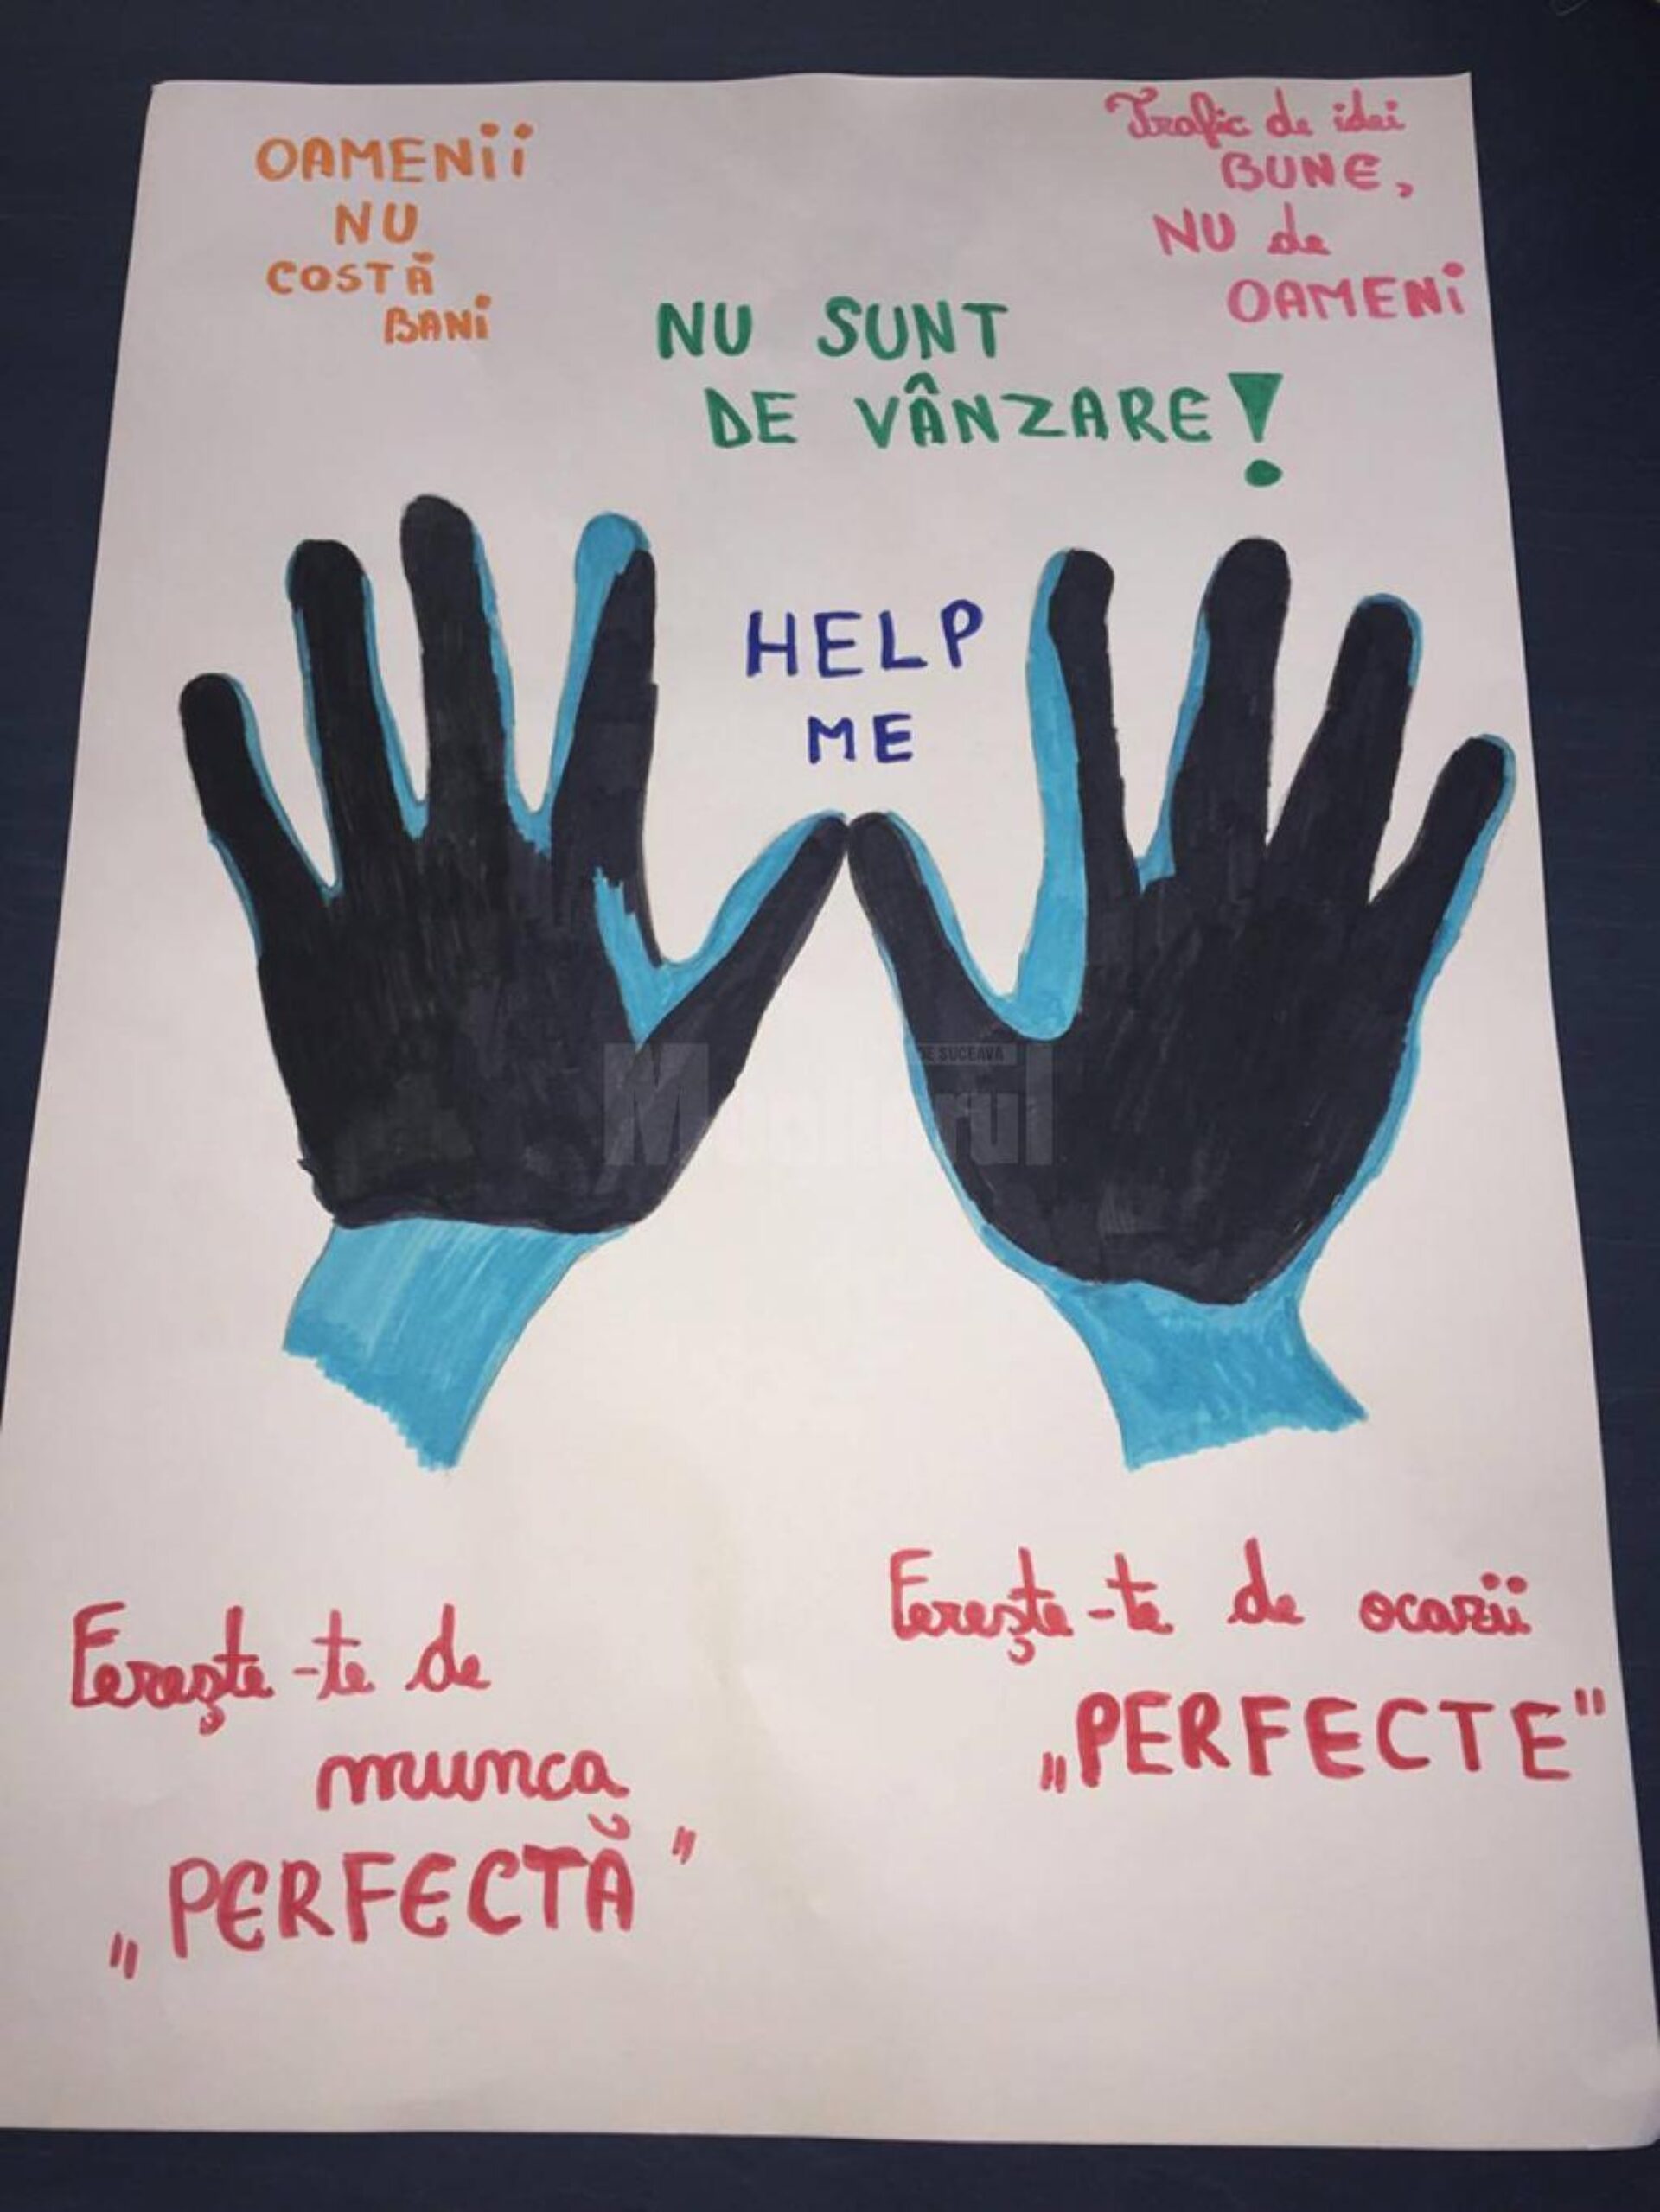 OAMENii
NU
COSTĂ
BANi
Trafic de idei
BUNE,
NU de
OAMENi
NU SUNT
DE VÂNZARE!
HELP
ME
DE SUCEAVA
Monitorul
Ferește-te de
munca
„PERFECTĂ”
Ferește-te de ocazii
„PERFECTE"